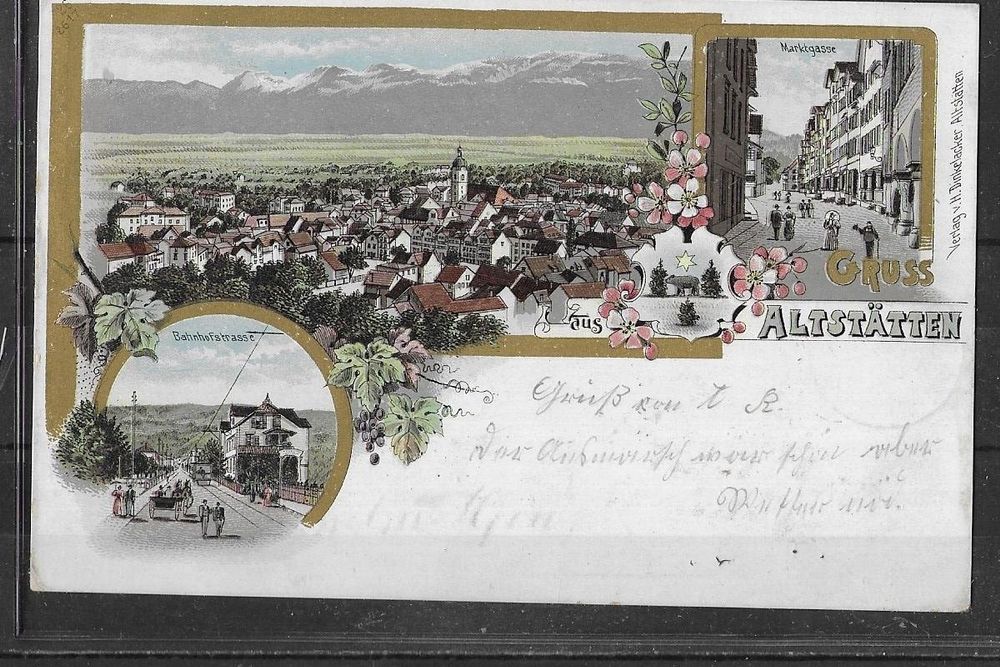 Marktgasse
Verlag v. H. Dinkelacker Altstätten
GRUSS
aus
ALTSTÄTTEN
Bahnhofstrasse
Gruß von
Der Ausmarsch war schön aber